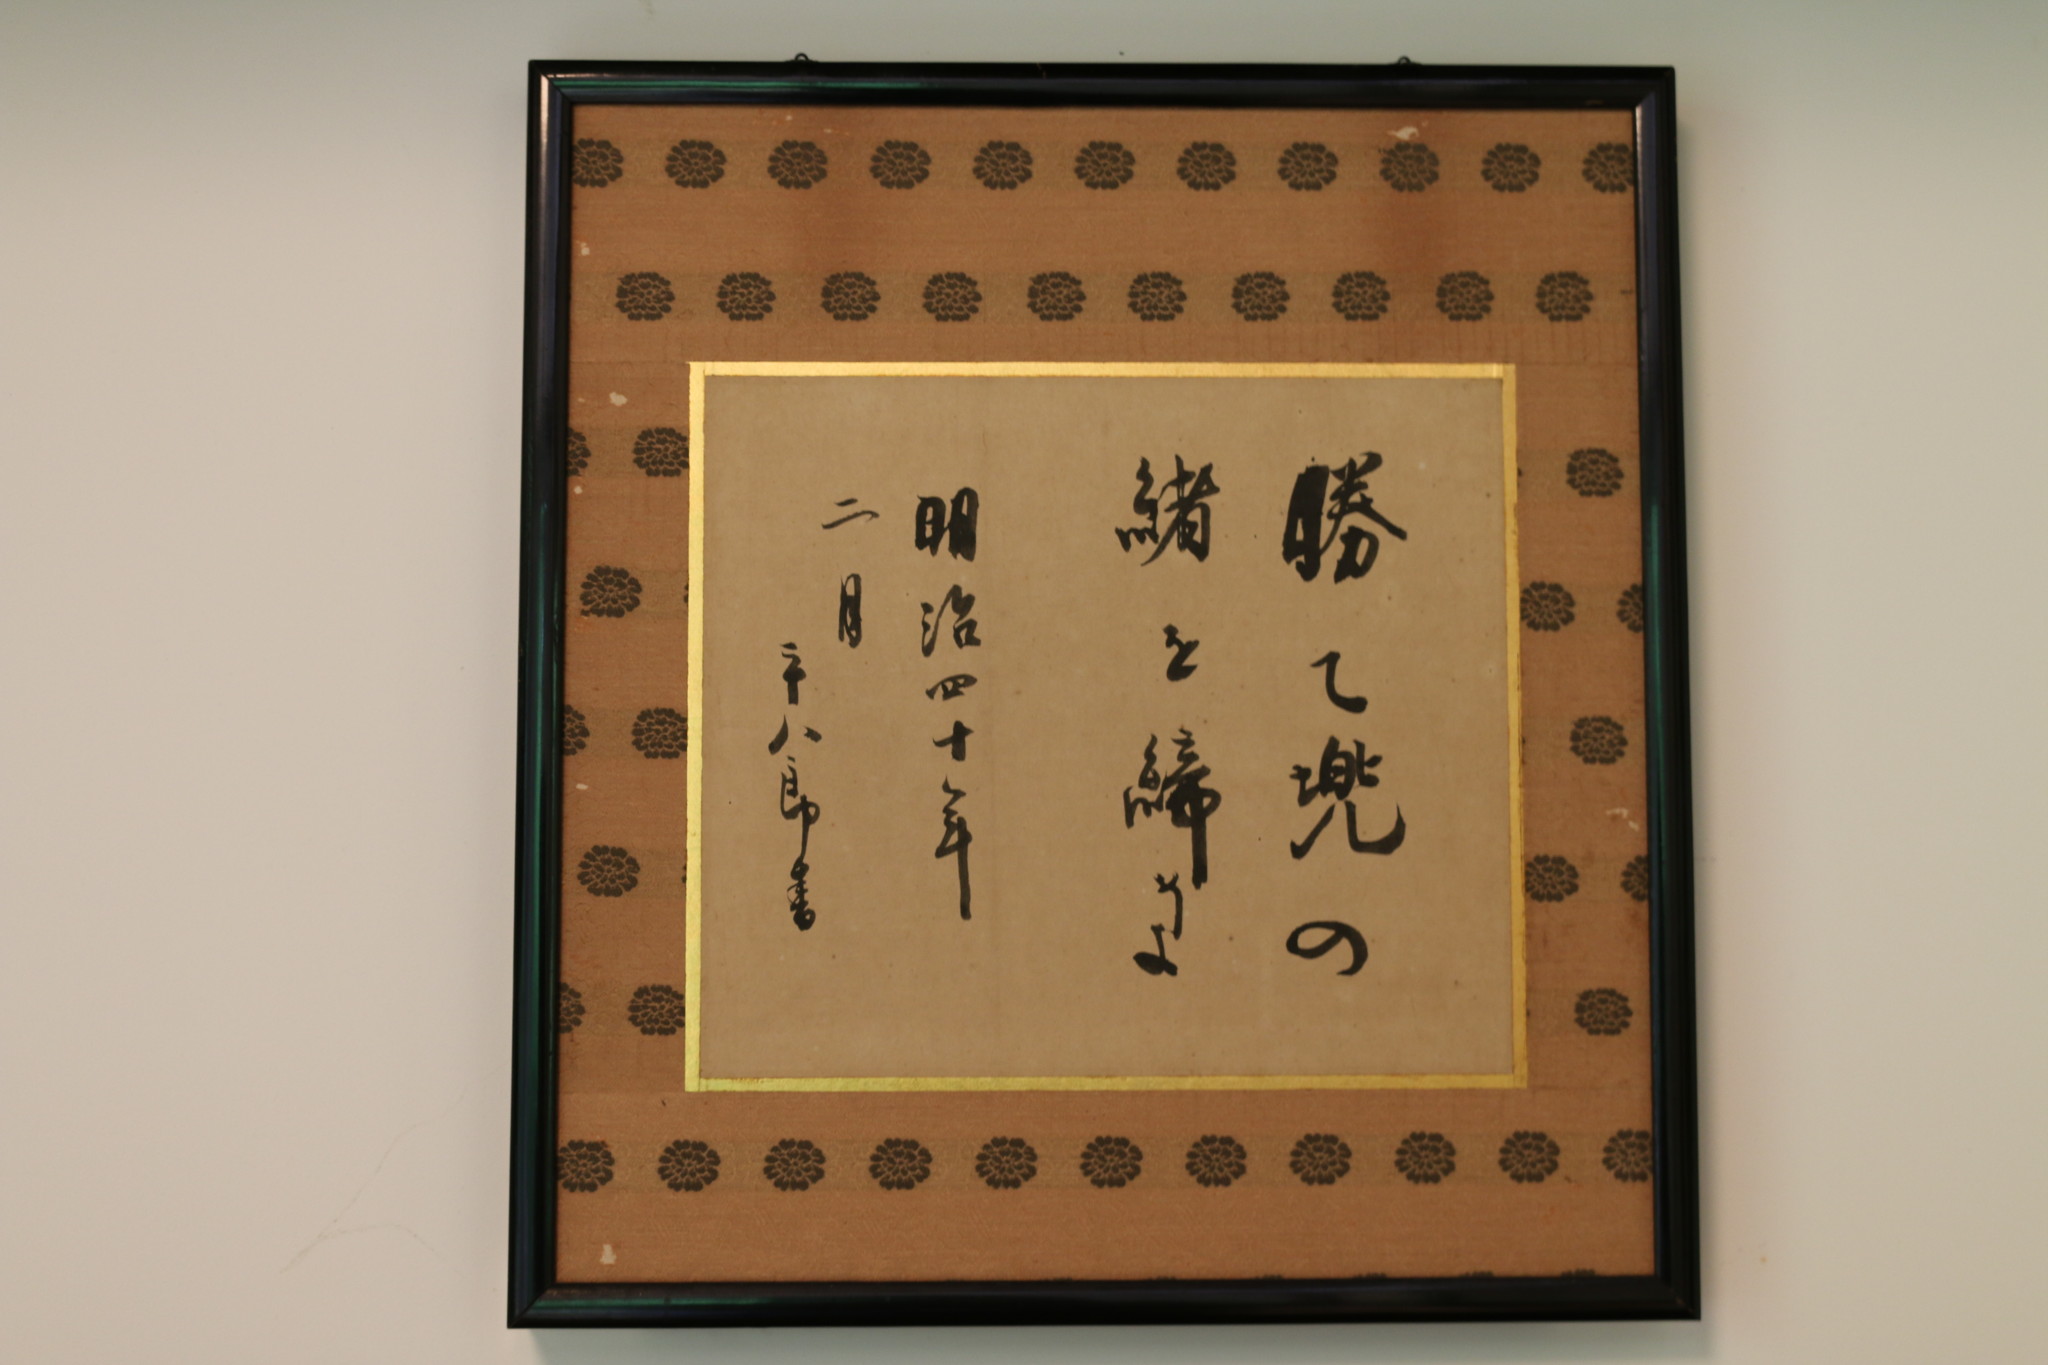 勝て兜の
緒を締めよ
明治四十年
二月
平八郎書